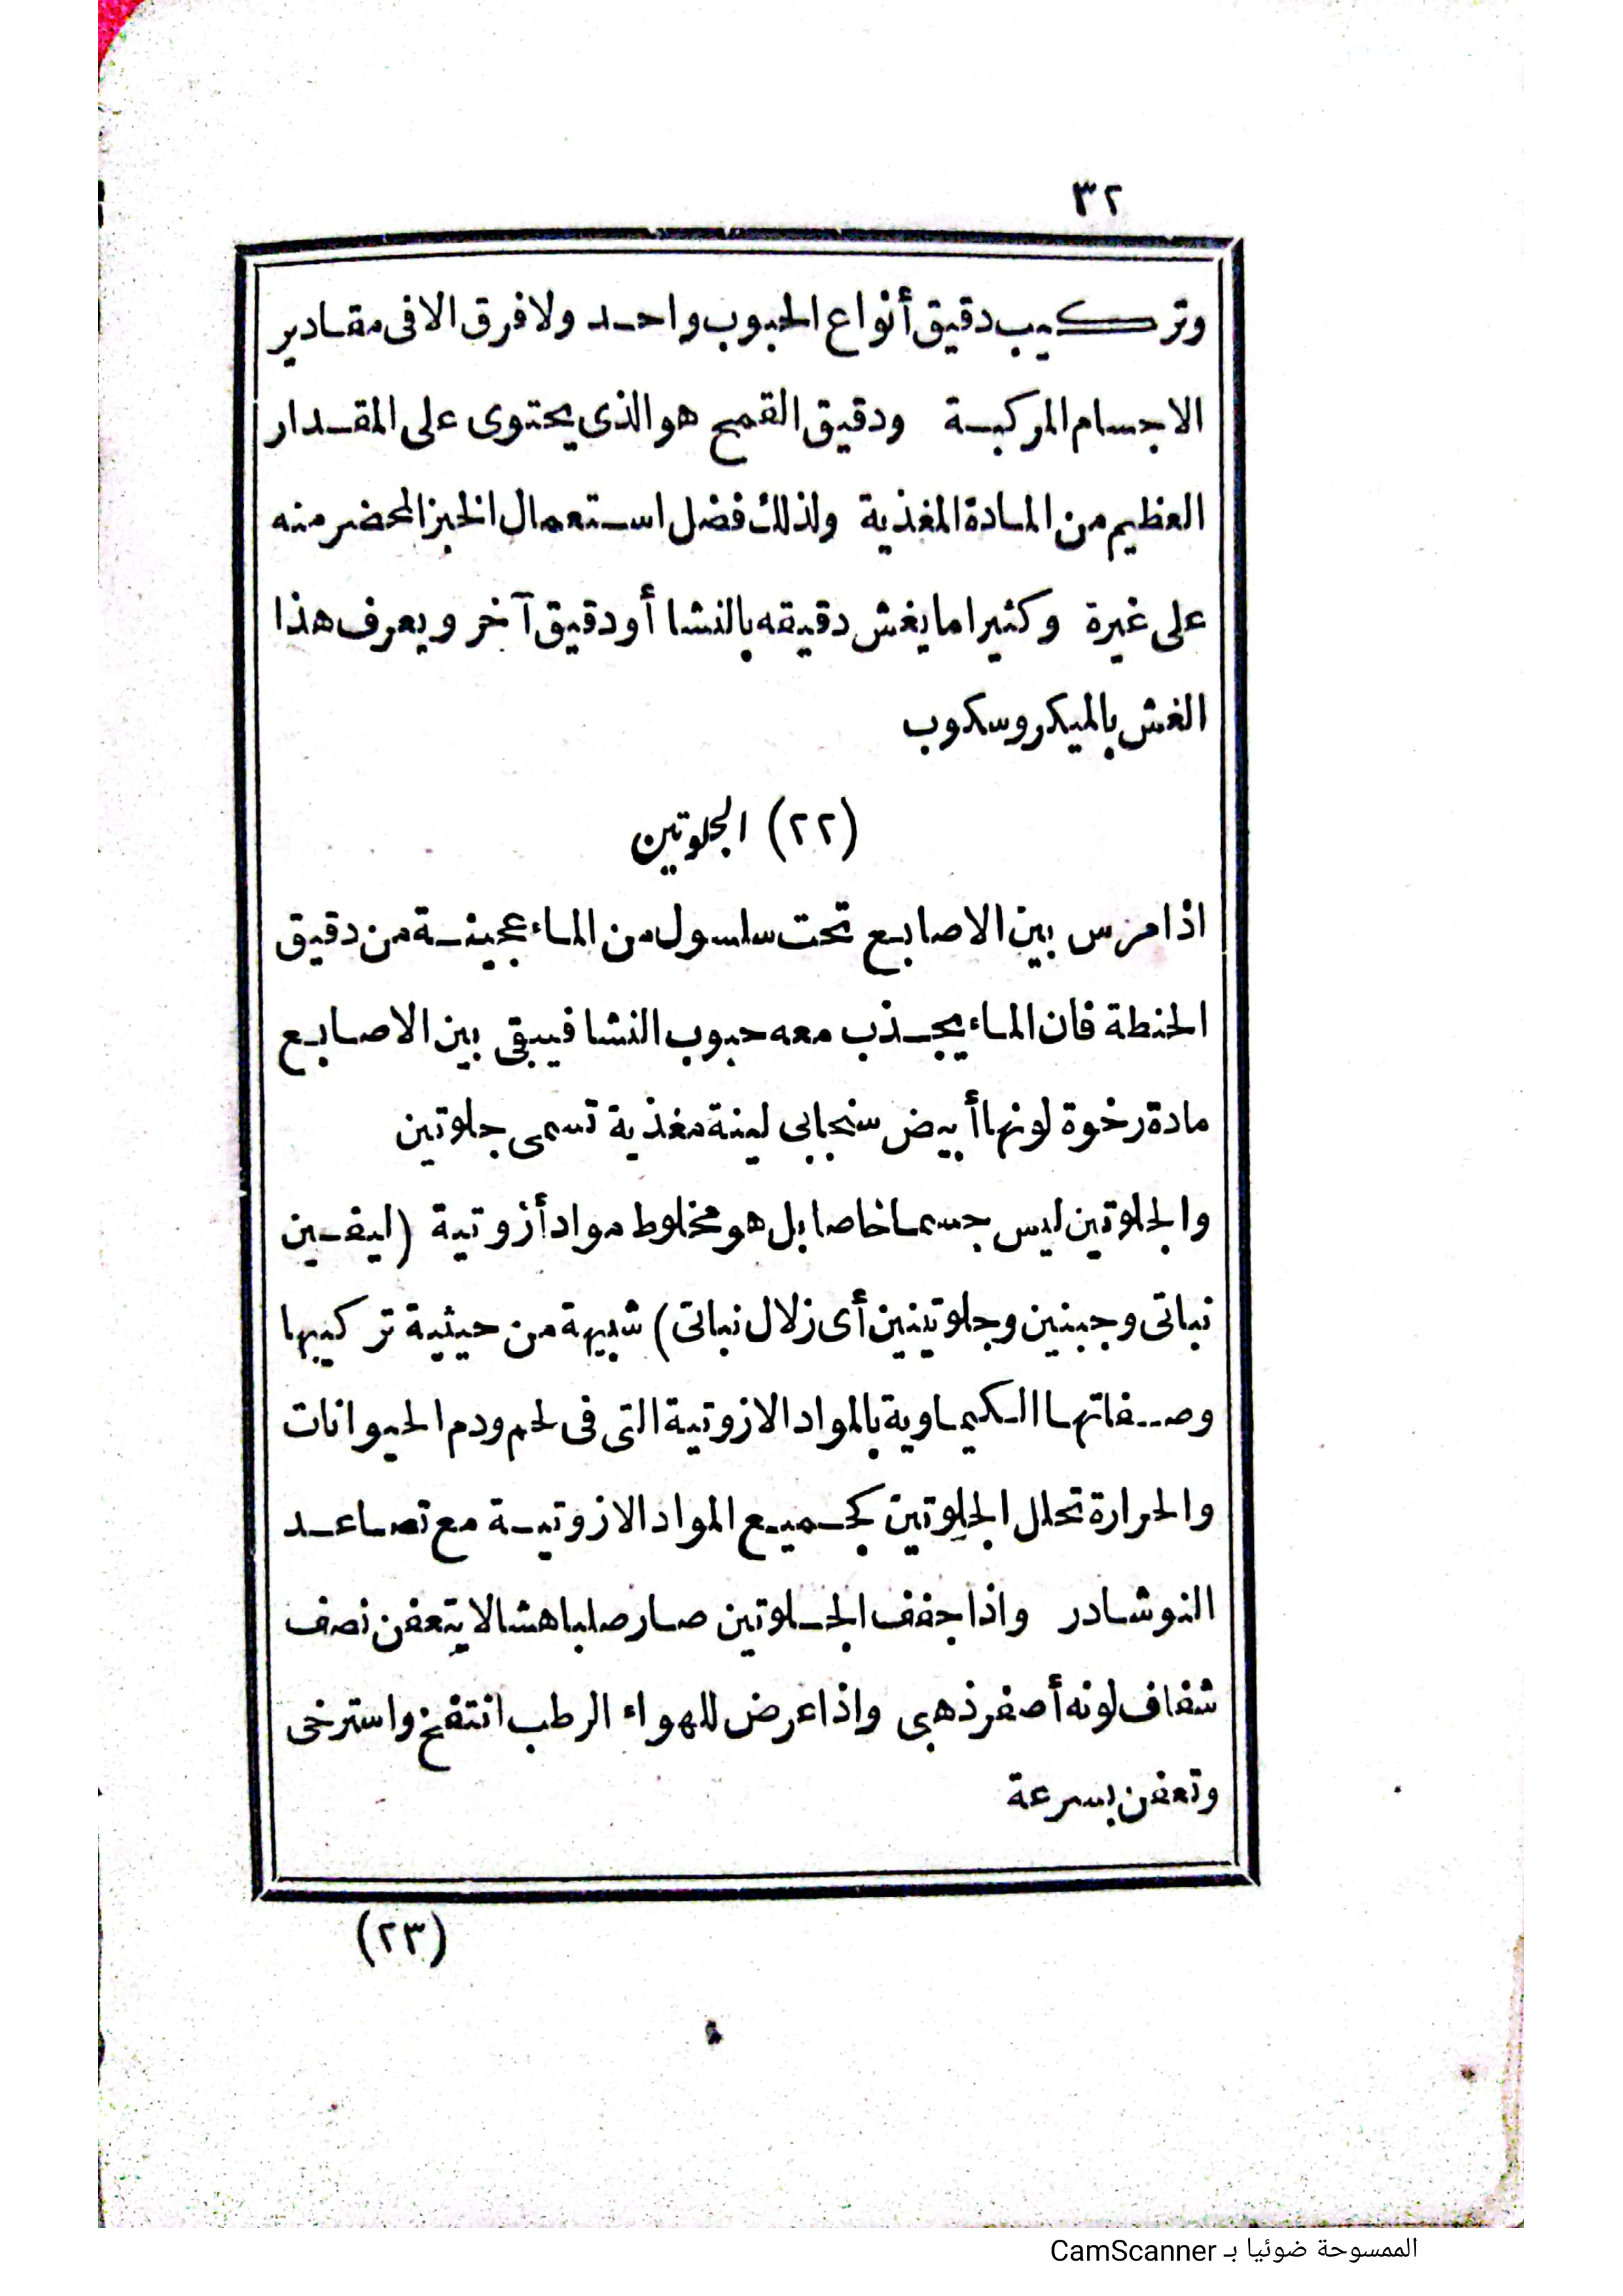 ٣٢
وتركيب دقيق أنواع الحبوب واحد ولا فرق الا فى مقادير
الاجسام المركبة ودقيق القمح هو الذى يحتوى على المقدار
العظيم من المادة المغذية ولذلك فضل استعمال الخبز المحضر منه
على غيرة وكثيرا ما يغش دقيقه بالنشا أو دقيق آخر ويعرف هذا
الغش بالميكروسكوب
(٢٢) الجلوتين
اذا مرس بين الاصابع تحت سلسول من الماء عجينة من دقيق
الحنطة فان الماء يجذب معه حبوب النشا فيبقى بين الاصابع
مادة رخوة لونها أبيض سنجابى لينة مغذية تسمى جلوتين
والجلوتين ليس جسما خاصا بل هو مخلوط مواد أزوتية (ليفين
نباتى وجبنين وجلوتينين أى زلال نباتى) شبيهة من حيثية تركيبها
وصفاتها الكيماوية بالمواد الازوتية التى فى لحم ودم الحيوانات
والحرارة تحلل الجلوتين كجميع المواد الازوتية مع تصاعد
النوشادر واذا جفف الجلوتين صار صلبا هشا لا يتعفن نصف
شفاف لونه أصفر ذهبى واذا عرض للهواء الرطب انتفخ واسترخى
وتعفن بسرعة
(٢٣)
الممسوحة ضوئيا بـ CamScanner